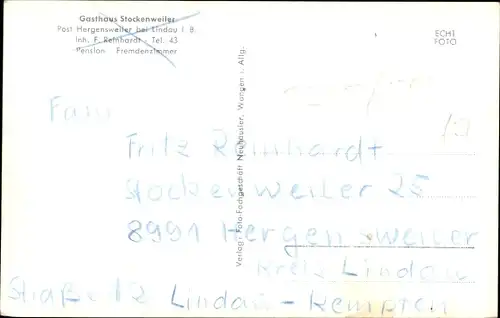 Gasthaus Stockenweiler
Post Hergensweiler bei Lindau i. B.
Inh. F. Reinhardt - Tel. 43
Pension Fremdenzimmer
ECHT
FOTO
Verlag: Foto-Fachgeschäft Neuhäusler, Wangen i. Allg.
Fam
Fritz Reinhardt
Stockenweiler 25
8991 Hergensweiler
Kreis Lindau
Straße 12 Lindau - Kempten